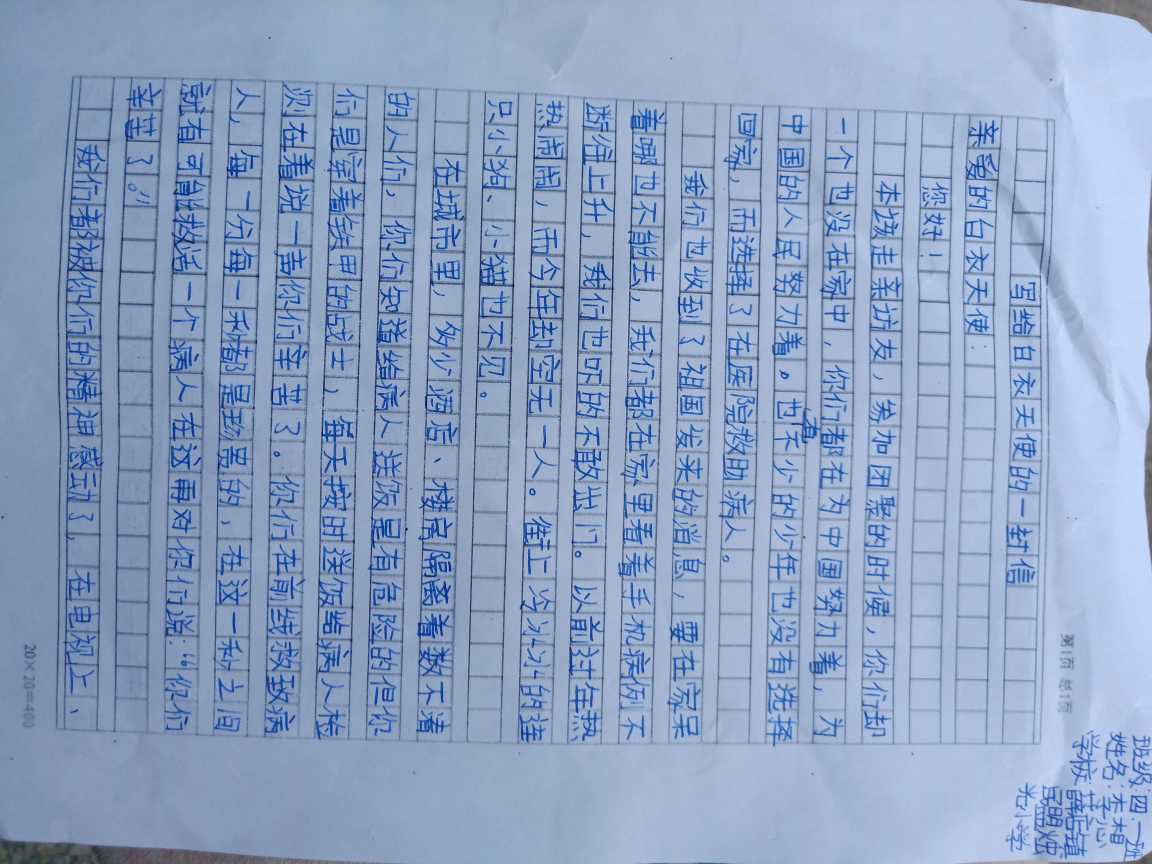 班级:四.一班
姓名:李相心
学校:薛店镇
民盟烛
光小学
第1页 总1页
写给白衣天使的一封信
亲爱的白衣天使:
你好!
本该走亲访友,参加团聚的时候,你们却
一个也没在家中,你们都在为中国努力着,为
中国的人民努力着。也有不少的少年也没有选择
回家,而选择了在医院救助病人。
我们也收到了祖国发来的消息,要在家呆
着哪也不能去,我们都在家里看着手机病例不
断往上升,我们也吓的不敢出门。以前过年热
热闹闹,而今年却空无一人。街上冷冰冰的连
只小狗、小猫也不见。
在城市里,多少酒店、楼房隔离着数不清
的人们,你们知道给病人送饭是有危险的但你
们是穿着铁甲的战士,每天按时送饭给病人检
次在着说一声你们辛苦了。你们在前线救致病
人,每一分每一秒都是珍贵的,在这一秒之间
就有可能救活一个病人在这再对你们说:“你们
辛苦了。”
我们都被你们的精神感动了,在电视上、
20×20=400